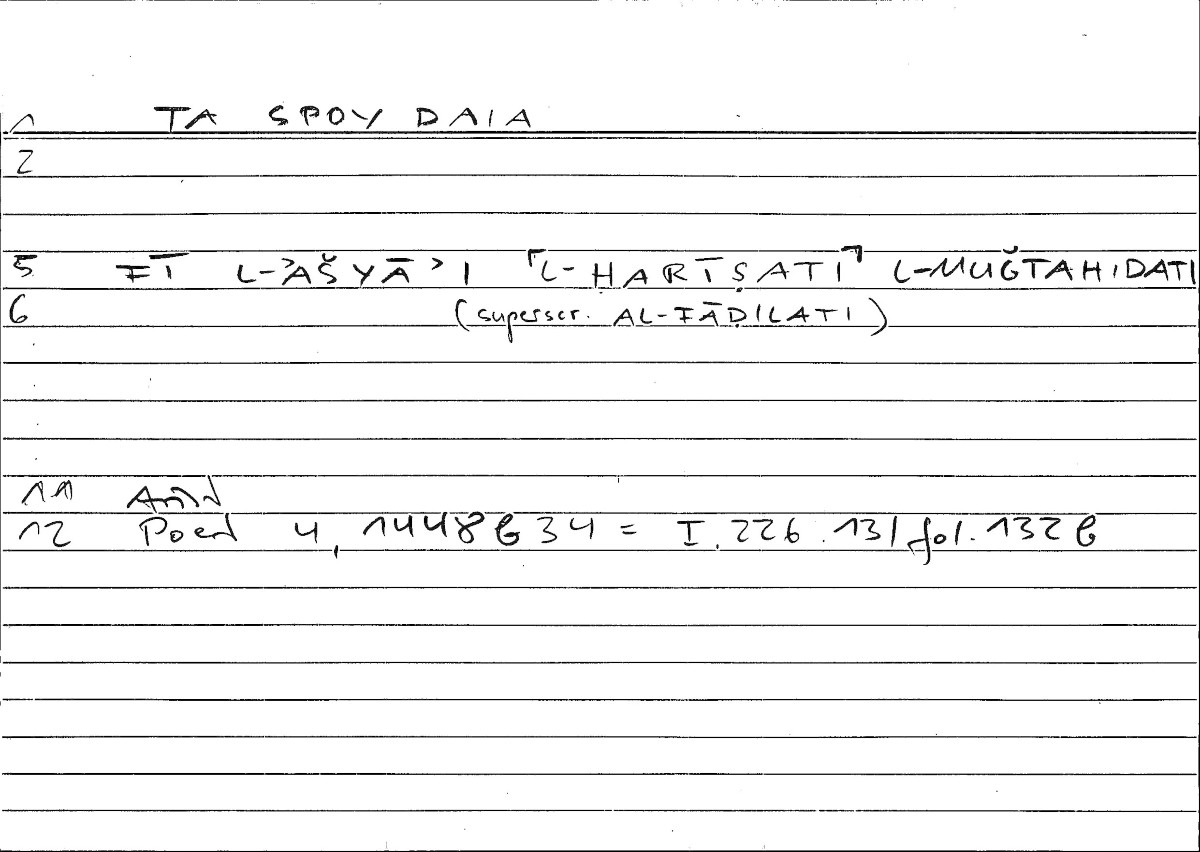 1 TA SPOYDAIA
2
5 FĪ L-ʾAŠYĀʾI ⌜L-ḤARĪṢATI⌝ L-MUǦTAHIDATI
6 (superscr. AL-FĀḌILATI)
11 Arist
12 Poet 4, 1448b34 = I.226.13/fol.132b